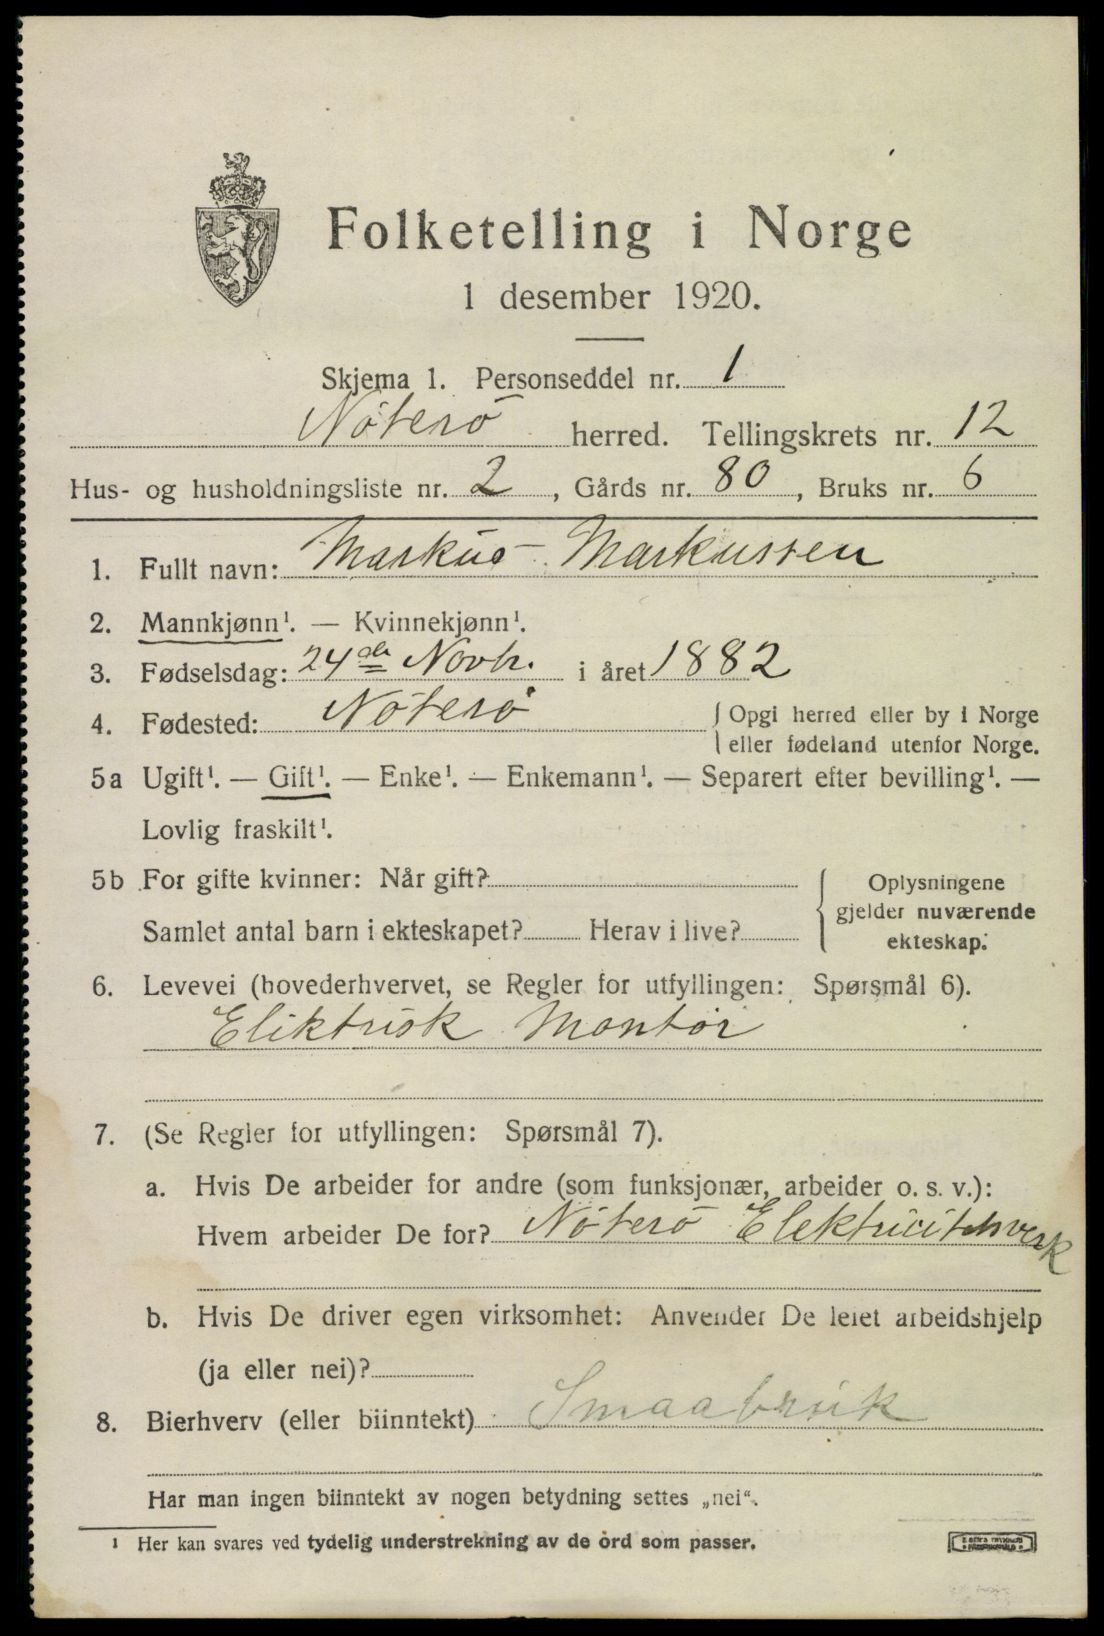 Folketelling i Norge
1 desember 1920.
Skjema 1. Personseddel nr. 1
Nøterø herred. Tellingskrets nr. 12
Hus- og husholdningsliste nr. 2, Gårds nr. 80, Bruks nr. 6
1. Fullt navn: Markus Markussen
2. Mannkjønn¹. — Kvinnekjønn¹.
3. Fødselsdag: 24de Novbr. i året 1882
4. Fødested: Nøterø { Opgi herred eller by i Norge
eller fødeland utenfor Norge.
5a Ugift¹. — Gift¹. — Enke¹. — Enkemann¹. — Separert efter bevilling¹. —
Lovlig fraskilt¹.
5b For gifte kvinner: Når gift? { Oplysningene
gjelder nuværende
Samlet antal barn i ekteskapet? Herav i live? ekteskap.
6. Levevei (hovederhvervet, se Regler for utfyllingen: Spørsmål 6).
Eliktrisk Montør
7. (Se Regler for utfyllingen: Spørsmål 7).
a. Hvis De arbeider for andre (som funksjonær, arbeider o. s. v.):
Hvem arbeider De for? Nøterø Elektricitetsverk
b. Hvis De driver egen virksomhet: Anvender De leiet arbeidshjelp
(ja eller nei)?
8. Bierhverv (eller biinntekt) Smaabruk
Har man ingen biinntekt av nogen betydning settes „nei“.
¹ Her kan svares ved tydelig understrekning av de ord som passer.